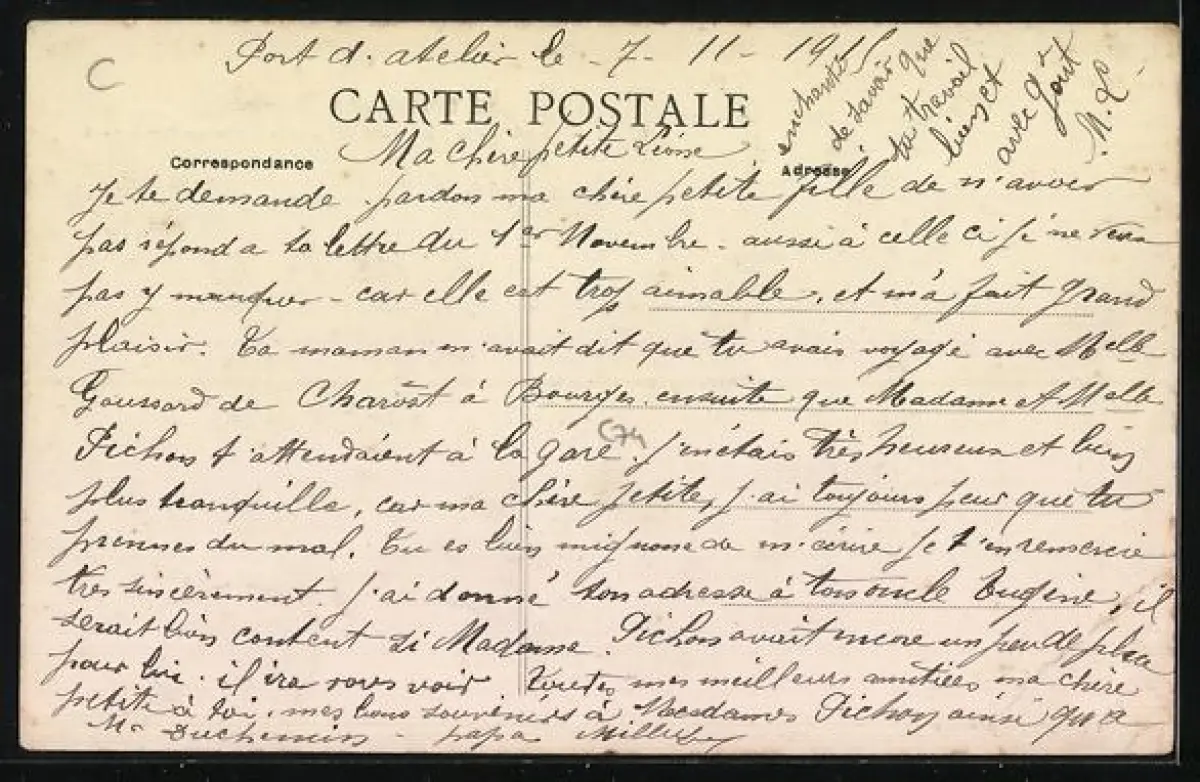 C
Port d. atelier le - 7 - 11 - 1915
CARTE POSTALE
Ma chère petite Léone
Correspondance
Adresse
enchanté
de savoir que
ta travail
bien et
avec gd
gout
M. L
Je te demande pardon ma chère petite fille de n'avoir
pas répond a ta lettre du 1er Novembre - aussi à celle ci je ne veux
pas y manquer - car elle est trop aimable, et m'a fait grand
plaisir. Ta maman m'avait dit que tu avais voyagé avec Melle
Goussard de Charost à Bourges, ensuite que Madame et Melle
Pichon t'attendaient à la gare. J'étais très heureux et bien
C74
plus tranquille, car ma chère petite, j'ai toujours peur que tu
prennes du mal. Tu es bien mignone de m'écrire je t'en remercie
très sincèrement. J'ai donné ton adresse à ton oncle Eugène, il
serait bien content si Madame Pichon avait encore un peu de place
pour lui. il ira vous voir Toutes mes meilleurs amitiées ma chère
petite à toi, mes bons souvenirs à Mesdames Pichon ainsi qu'a
Mr Duchemin - papa